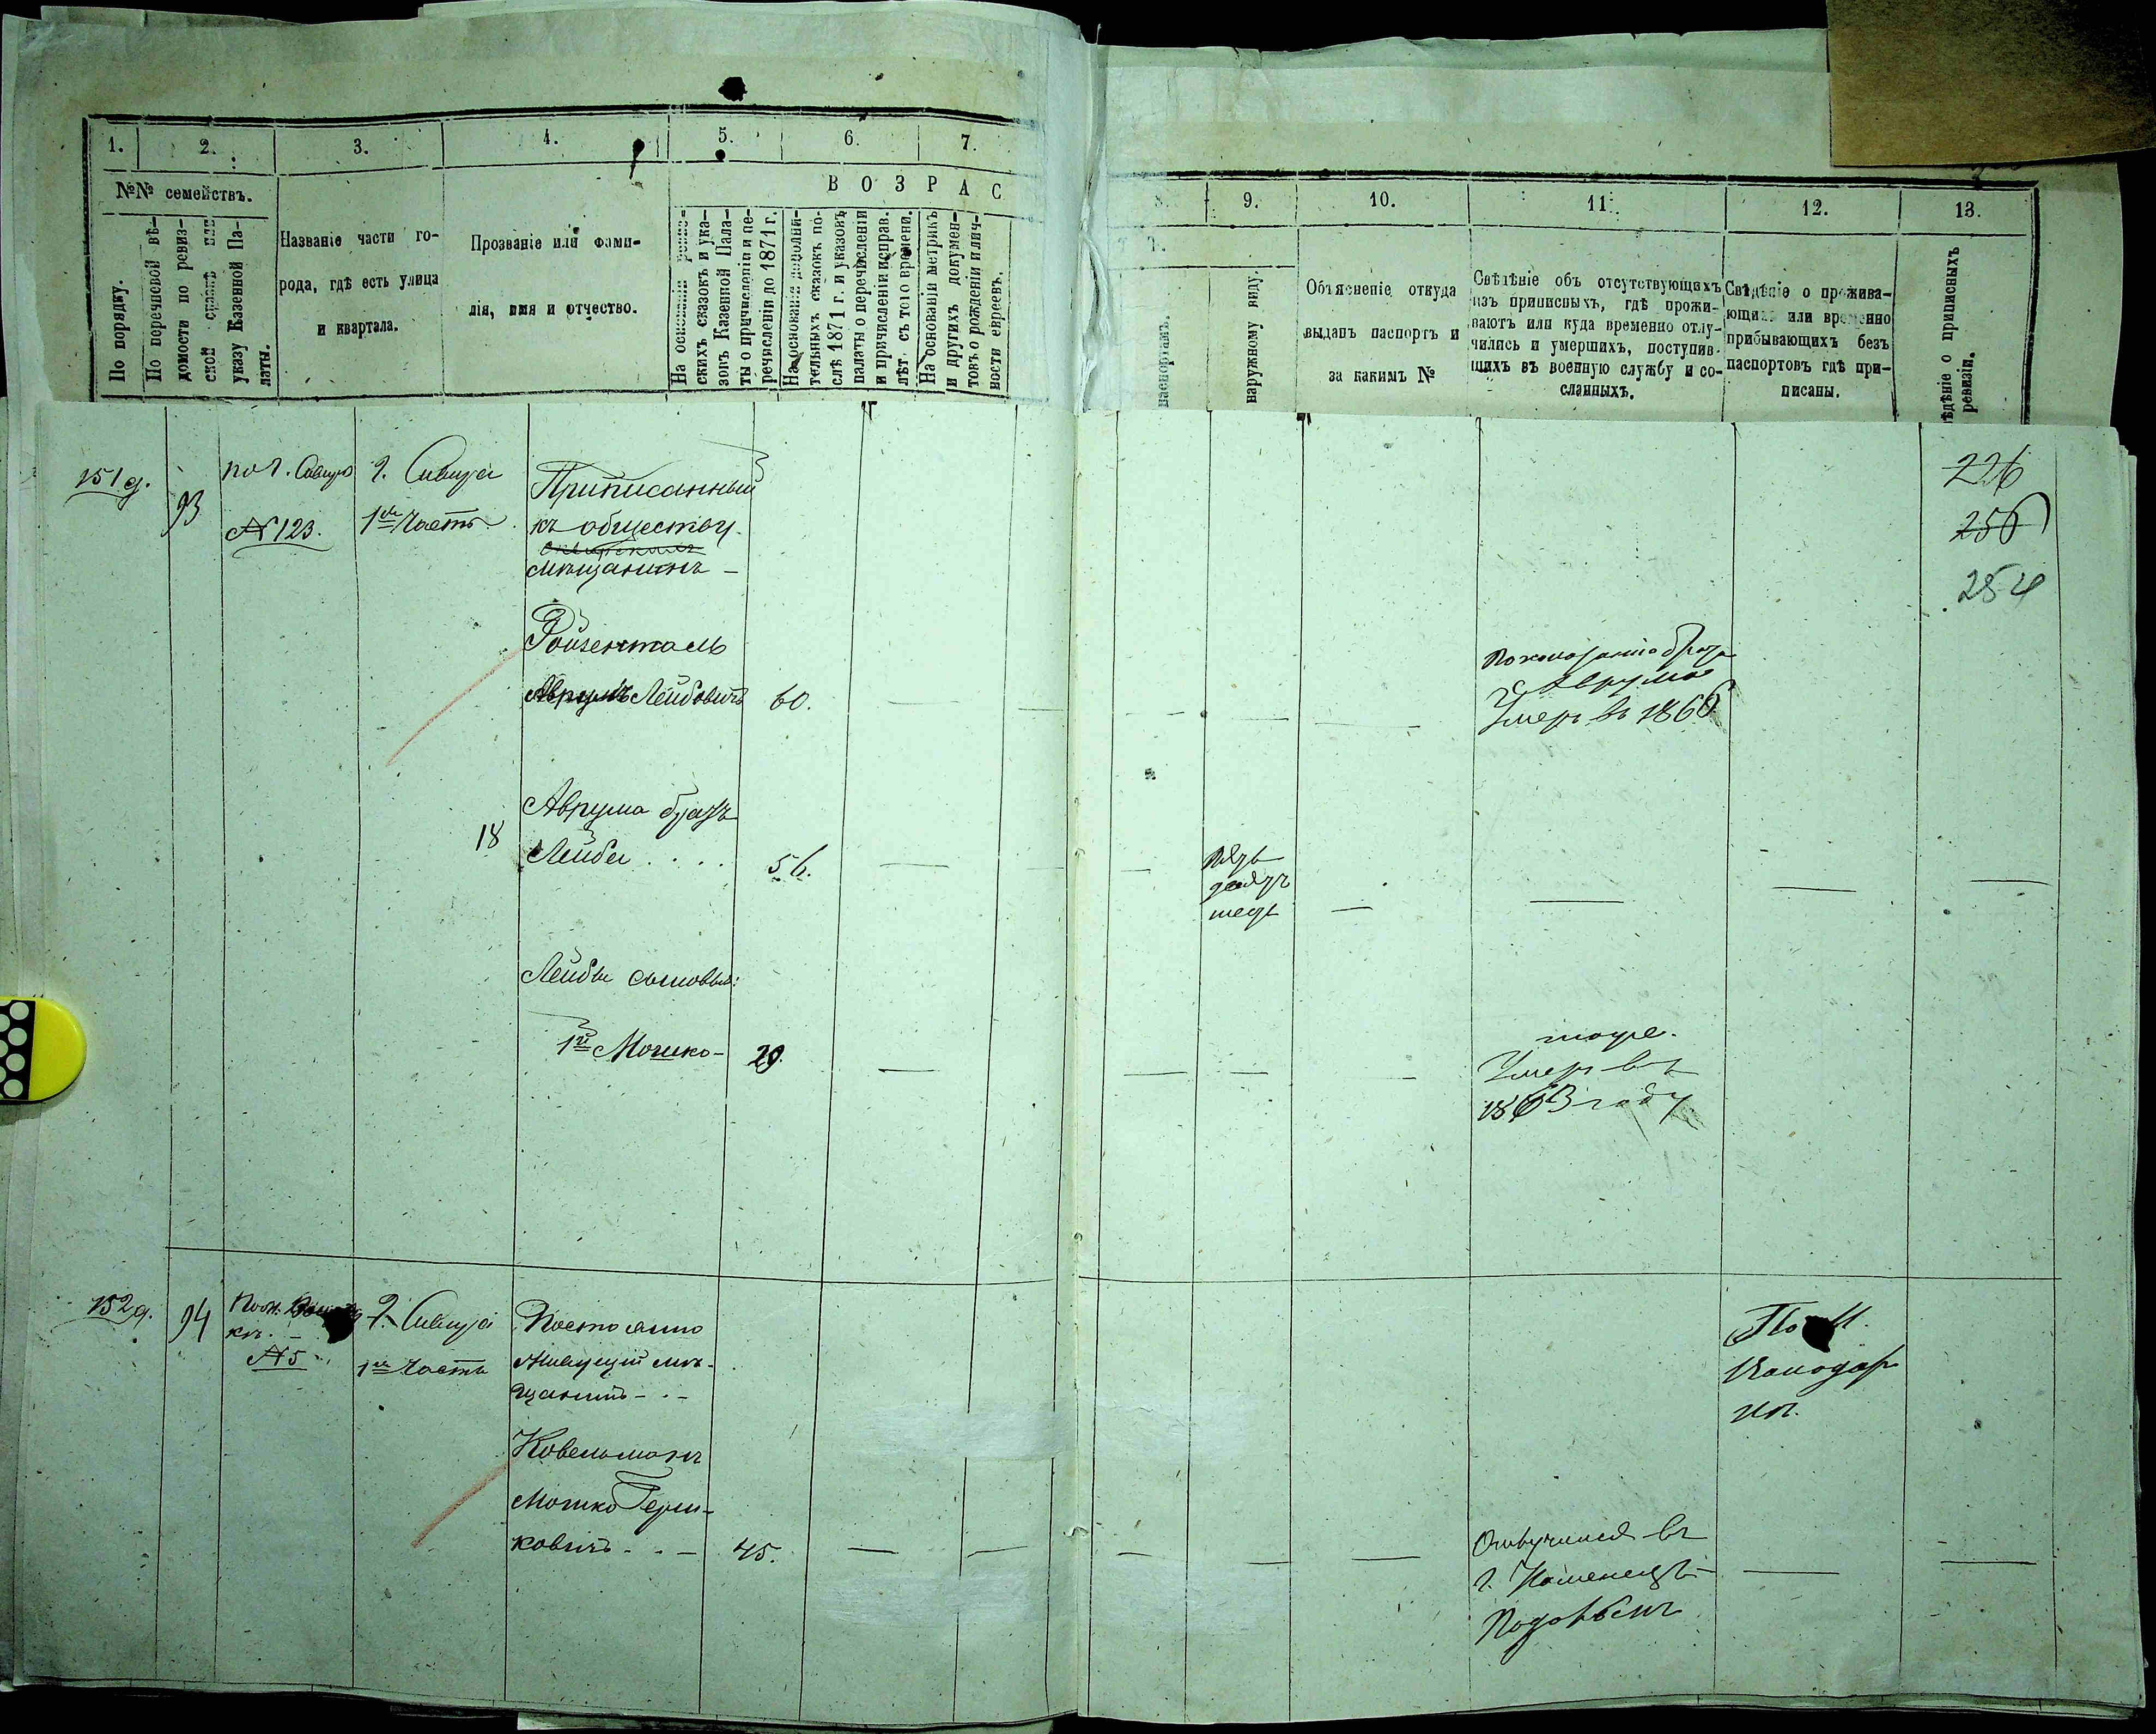 1.
2.
3.
4.
5.
6.
7.
№№ семействъ.
В О З Р А С
По порядку.
По перечневой вѣ-
домости по ревиз-
ской сказкѣ или
указу Казенной Па-
латы.
Названіе части го-
рода, гдѣ есть улица
и квартала.
Прозваніе или фами-
лія, имя и отчество.
На основаніи ревиз-
скихъ сказокъ и ука-
зовъ Казенной Пала-
ты о причисленіи и пе-
речисленіи до 1871 г.
На основаніи дополни-
тельныхъ сказокъ по-
слѣ 1871 г. и указовъ
палаты о перечисленіи
и причисленіи исправ.
лѣт. съ того времени.
На основаніи метрикъ
и другихъ докумен-
товъ о рожденіи и лич-
ности евреевъ.
8.
9.
10.
11.
12.
13.
Т Ъ.
паспортамъ.
наружному виду.
Объясненіе откуда
выданъ паспортъ и
за какимъ №
Свѣдѣніе объ отсутствующихъ
изъ приписныхъ, гдѣ прожи-
ваютъ или куда временно отлу-
чились и умершихъ, поступив-
щихъ въ военную службу и со-
сланныхъ.
Свѣдѣніе о прожива-
ющихъ или временно
прибывающихъ безъ
паспортовъ гдѣ при-
писаны.
ѣдѣніе о приписныхъ
ревизіи.
151 д.
93
по г. Сквирѣ
№ 123.
г. Сквира
1я Часть
Приписанный
къ обществу
мѣщанинъ
Ройзенталь
Аврумъ Лейбовичъ
60.
По показанію брата
Аврума
Умеръ въ 1866
226
256
254
18
Аврума братъ
Лейба . . . .
56.
пять
десятъ
шесть
Лейбы сыновья:
1й Мошко
29.
тоже.
Умеръ въ
1863 году
152 д.
94
№ 5
г. Сквира
1я Часть
Постоянно
Живущій мѣ-
щанинъ
Ковельманъ
Мошко Герш-
ковичъ
45.
Отлучился въ
г. Каменецъ-
Подольскъ